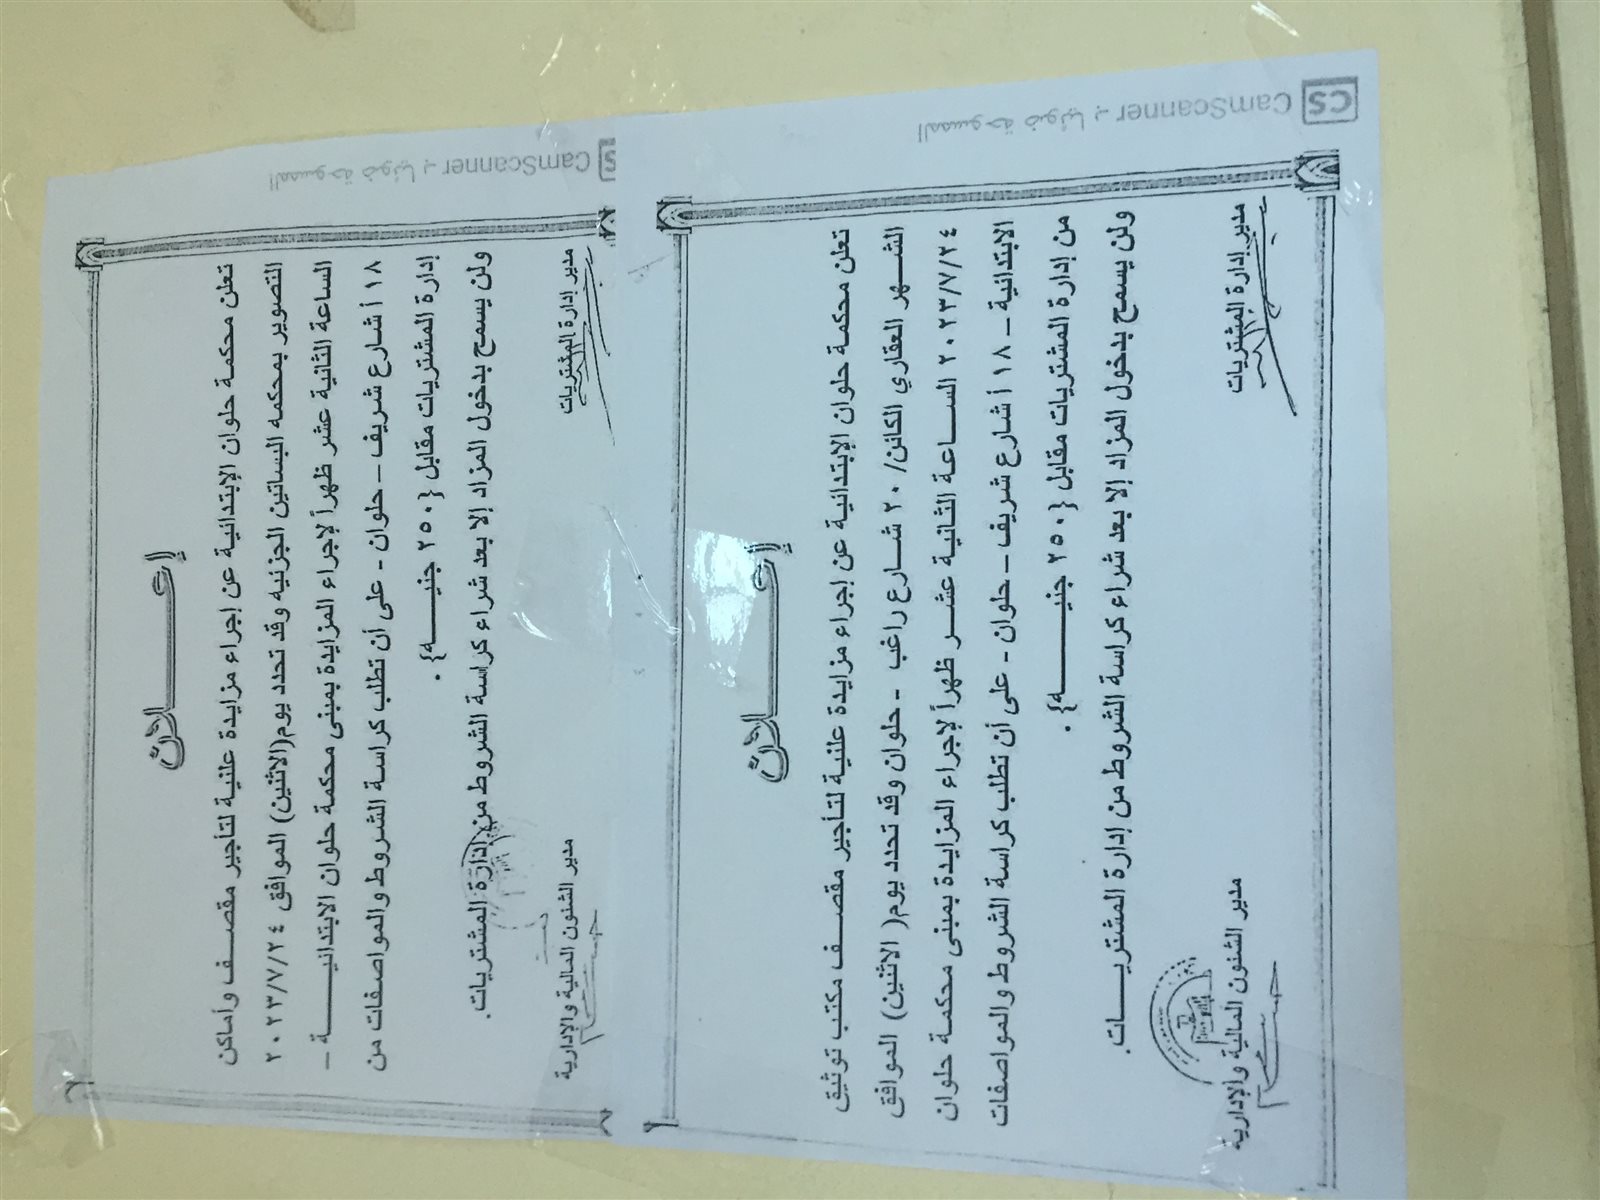 إعـــــلان
تعلن محكمة حلوان الإبتدائية عن إجراء مزايدة علنية لتأجير مقصـــف وأماكن
التصوير بمحكمه البساتين الجزئيه وقد تحدد يوم(الاثنين) الموافق ٢٠٢٣/٧/٢٤
الساعة الثانية عشر ظهراً لإجراء المزايدة بمبنى محكمة حلوان الابتدائيـــــة –
١٨ أ شارع شريف – حلوان - على أن تطلب كراسة الشروط والمواصفات من
إدارة المشتريات مقابل {٢٥٠ جنيـــــه}.
ولن يسمح بدخول المزاد إلا بعد شراء كراسة الشروط من إدارة المشتريات.
مدير إدارة المشتريات
مدير الشئون المالية والإدارية
الممسوحة ضوئيا بـ CamScanner
إعـــــلان
تعلن محكمـة حلوان الإبتدائية عن إجراء مزايدة علنية لتأجير مقصـف مكتب توثيق
الشـــهر العقاري الكائن/ ٢٠ شـــارع راغب - حلوان وقد تحدد يوم( الاثنين) الموافق
٢٠٢٣/٧/٢٤ الســـاعة الثانية عشـــر ظهراً لإجراء المزايدة بمبنى محكمـة حلوان
الابتدائية – ١٨ أ شارع شريف – حلوان - على أن تطلب كراسة الشروط والمواصفات
من إدارة المشتريات مقابل {٢٥٠ جنيـــــه}.
ولن يسمح بدخول المزاد إلا بعد شراء كراسة الشروط من إدارة المشتريـــات.
مدير إدارة المشتريات
مدير الشئون المالية والإدارية
الممسوحة ضوئيا بـ CamScanner
CS